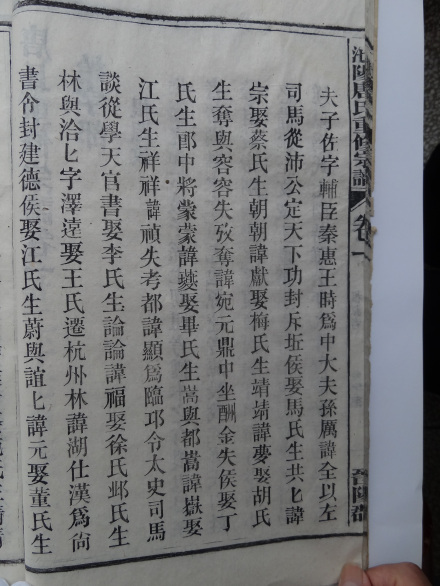 沔陽唐氏重修宗譜
卷一
晉陽堂
夫子佐字輔臣秦惠王時爲中大夫孫厲諱全以左
司馬從沛公定天下功封斥坵侯娶馬氏生共匕諱
宗娶蔡氏生朝朝諱獻娶梅氏生靖靖諱夢娶胡氏
生奪與容容失攷奪諱宛元鼎中坐酬金失侯娶丁
氏生郎中將蒙蒙諱娶畢氏生嵩與都嵩諱嶽娶
江氏生祥祥諱禎失考都諱顯爲臨邛令太史司馬
談從學天官書娶李氏生論論諱福娶徐氏邺氏生
林與洽匕字澤逵娶王氏遷杭州林諱湖仕漢爲尙
書令封建德侯娶江氏生蔚與誼匕諱元娶董氏生